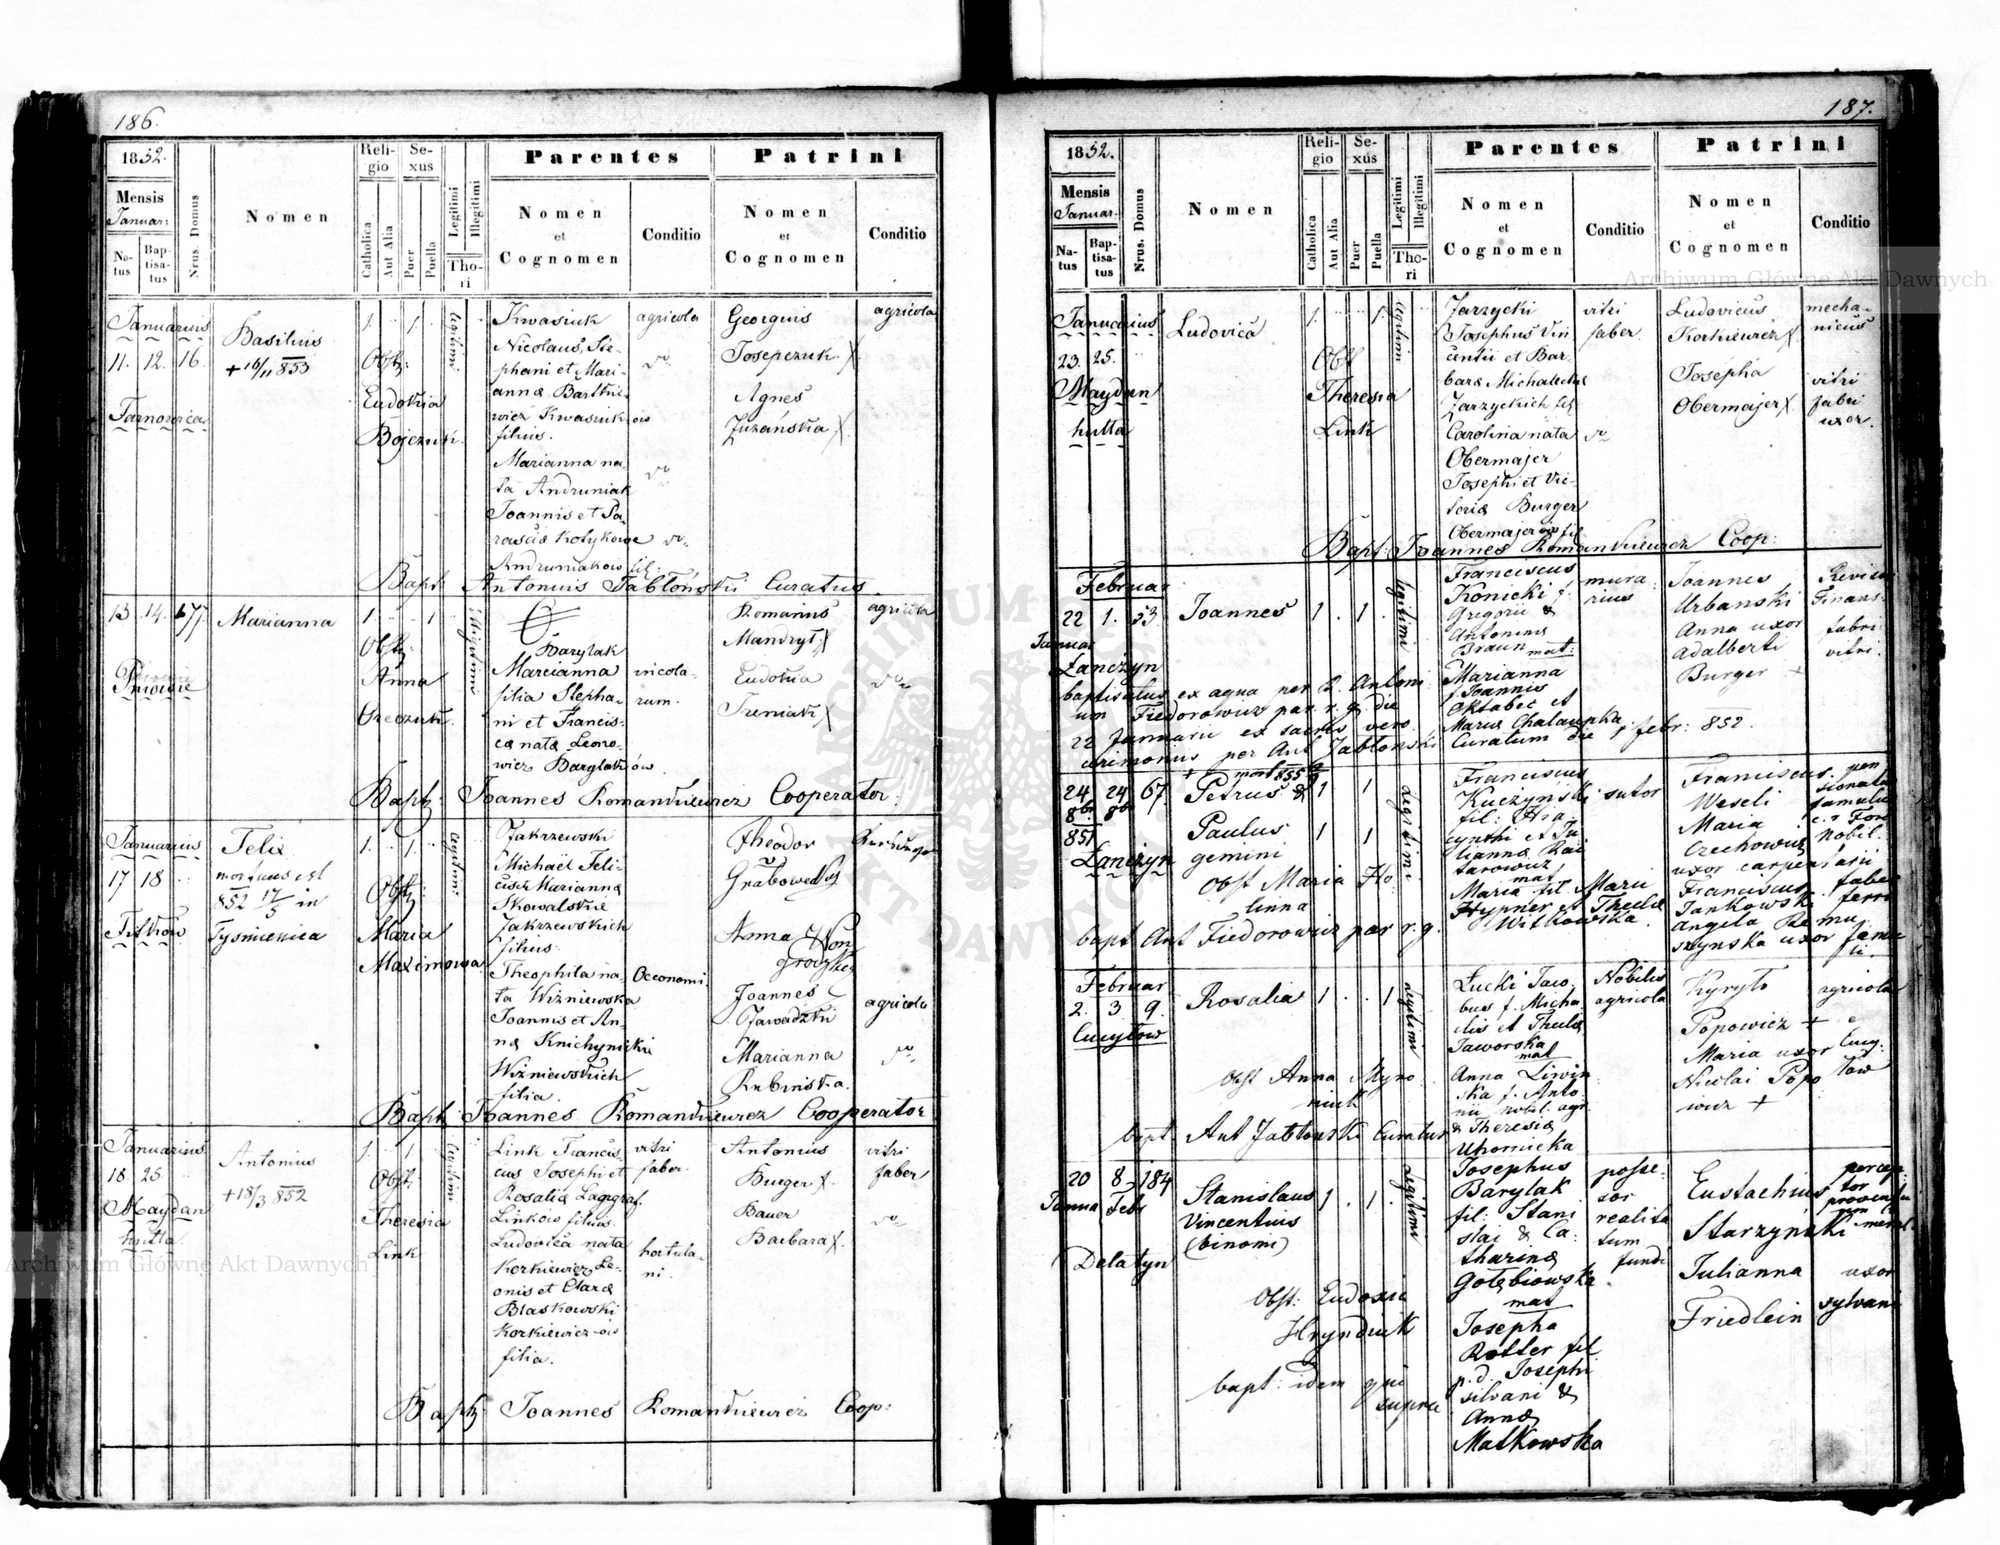 186.
1852.
Mensis
Januar:
Natus
Baptisatus
Nrus. Domus
Nomen
Religio
Catholica
Aut Alia
Sexus
Puer
Puella
Legitimi
Illegitimi
Thori
Parentes
Nomen
et
Cognomen
Conditio
Patrini
Nomen
et
Cognomen
Conditio
Januarius
11. 12. 16.
Tarnowica
Basilius
+ 16/11 853
1. 1.
Obst:
Eudokia
Bojczuk.
legitimi
Kwasiuk
Nicolaus, Ste-
phani et Mari-
anna Bartkie-
wicz Kwasiuk ow
filius.
Marianna na-
ta Andruniak
Joannis et Pa-
rascia Kotykowe
Andruniakow fil:
agricola
do
do
do
Georgius
Josepczuk. X
Agnes
Zuzańska X
agricola
Bapt: Antonius Jabłoński Curatus.
13 14. 177
Pniowie
Marianna
1. 1
Obst:
Anna
illegitimi
Barylak
Marcianna
filia Stepha-
ni et Francis-
ca nata Leono-
wicz Barylaków.
agricola-
rum.
Romanus
Mandryk X
Eudokia
Ireniak X
agricola
do
Bapt: Joannes Romankiewicz Cooperator.
Januarius
17 18
Felix
mortuus est
852 17/5 in
Tysmienica
1. 1.
Obst:
Maria
Maximowa
legitimi
Zakrzewski
Michaël Feli-
cis et Marianna
Kowalskie
Zakrzewskich
filius.
Theophila na-
ta Wiżniewska
Joannis et An-
na Knihynickie
Wiżniewskich
filia.
Oeconomi
Theodor
Grabowedzki
Anna
Joannes
Zawadzki
Marianna
Rubinska.
agricola
do
Bapt: Joannes Romankiewicz Cooperator
Januarius
18. 25.
Maydan
hutta
Antonius
+ 18/3 852
1. 1.
Obst:
Theresia
Link
legitimi
Link Francis-
cus Josephi et
Rosalia Langgraf.
Linków filius.
Ludovica nata
Korkiewicz Le-
onis et Clara
Blaskowski
Korkiewicz-ow
filia.
vitri
faber.
hortula-
ni.
Antonius
Burger X.
Bauer
Barbara X.
vitri
faber
do
Bapt: Joannes Romankiewicz Coop:
187.
1852.
Mensis
Januar.
Natus
Baptisatus
Nrus. Domus
Nomen
Religio
Catholica
Aut Alia
Sexus
Puer
Puella
Legitimi
Illegitimi
Thori
Parentes
Nomen
et
Cognomen
Conditio
Patrini
Nomen
et
Cognomen
Conditio
Januarius
23. 25.
Maydan
hutta
Ludovica
1. 1
Obst
Theresia
Link
legitimi
Zarzycki
Josephus Vin-
centii et Bar-
bara Michalecka
Zarzyckich fil
Carolina nata
Obermajer
Josephi et Vic-
toria Burger
Obermajer ow fil
vitri
faber.
do
Ludovicus
Korkiewicz X
Josepha
Obermajer X.
mecha-
nicus
vitri
fabri
uxor.
Bapt: Joannes Romankiewicz Coop:
Februar
22 1. 53.
Januar
Łanczyn
Joannes
1 . 1 .
legitimi
Franciscus
Konicki f.
Gregorii &
Antonina
Braun
mat:
Marianna
f. Joannis
Oktabec et
Maria Chalaupka.
mura-
rius
Joannes
Urbanski
Anna uxor
Adalberti
Burger +
Revid
Finans.
fabri
vitri.
baptisatus ex aqua per R. Antoni-
um Fiedorowicz par. r. g. die
22 Januarii ex sacris vero
ceremoniis per Ant Jabłonski Curatum die 1 febr: 852.
24 24 67
8br. 8br
851
Łanczyn
+ mort 855
Petrus &
Paulus
gemini
1 1
1 1
Legitimi
Obst Maria Ho-
linna
Franciscus
Kuczyński
fil: Hia-
cynthi et Ju-
lianna Rai-
tarowicz
mat
Maria fil Mari
Hypner et Thecla
Witkowska.
sutor
Franciscus
Weseli
Maria
Czechowicz
uxor carpentarii
Franciscus
Jankowski
Angela Re
szynska uxor
pen
sionatus
famulus
nobil.
faber
ferra
famu
li.
bapt Ant Fiedorowicz par r. g.
Februar
2. 3. 9.
Cucyłow
Rosalia
1 . . 1
legitimi
Obst Anna Myro-
niuk
Łucki Jaco-
bus f. Micha-
elis et Thecla
Jaworska
mat
Anna Liwin-
ska f. Anto-
nii nobil. agr.
& Theresia
Uhornicka
Nobilis
agricola
Kyryło
Popowicz +
Maria uxor
Nicolai Popo-
wicz +
agricola
e
Cucy-
low
bapt Ant Jabłonski Curatus
20 8 184
Janua Febr
Delatyn
Stanislaus
Vincentius
(binomi)
1. . 1.
legitimi
Obst: Eudoxia
Hryndiuk
Josephus
Barylak
fil: Stani
slai & Ca-
tharina
Gołębiowska
mat
Josepha
Rotter fil
p. d. Josephi
silvani &
Anna
Małkowska
posse-
sor
realita
tum
fundi
Eustachius
Starzyński
Julianna
Friedlein
percep
tor
uxor
sylvani
bapt: idem qui
supra